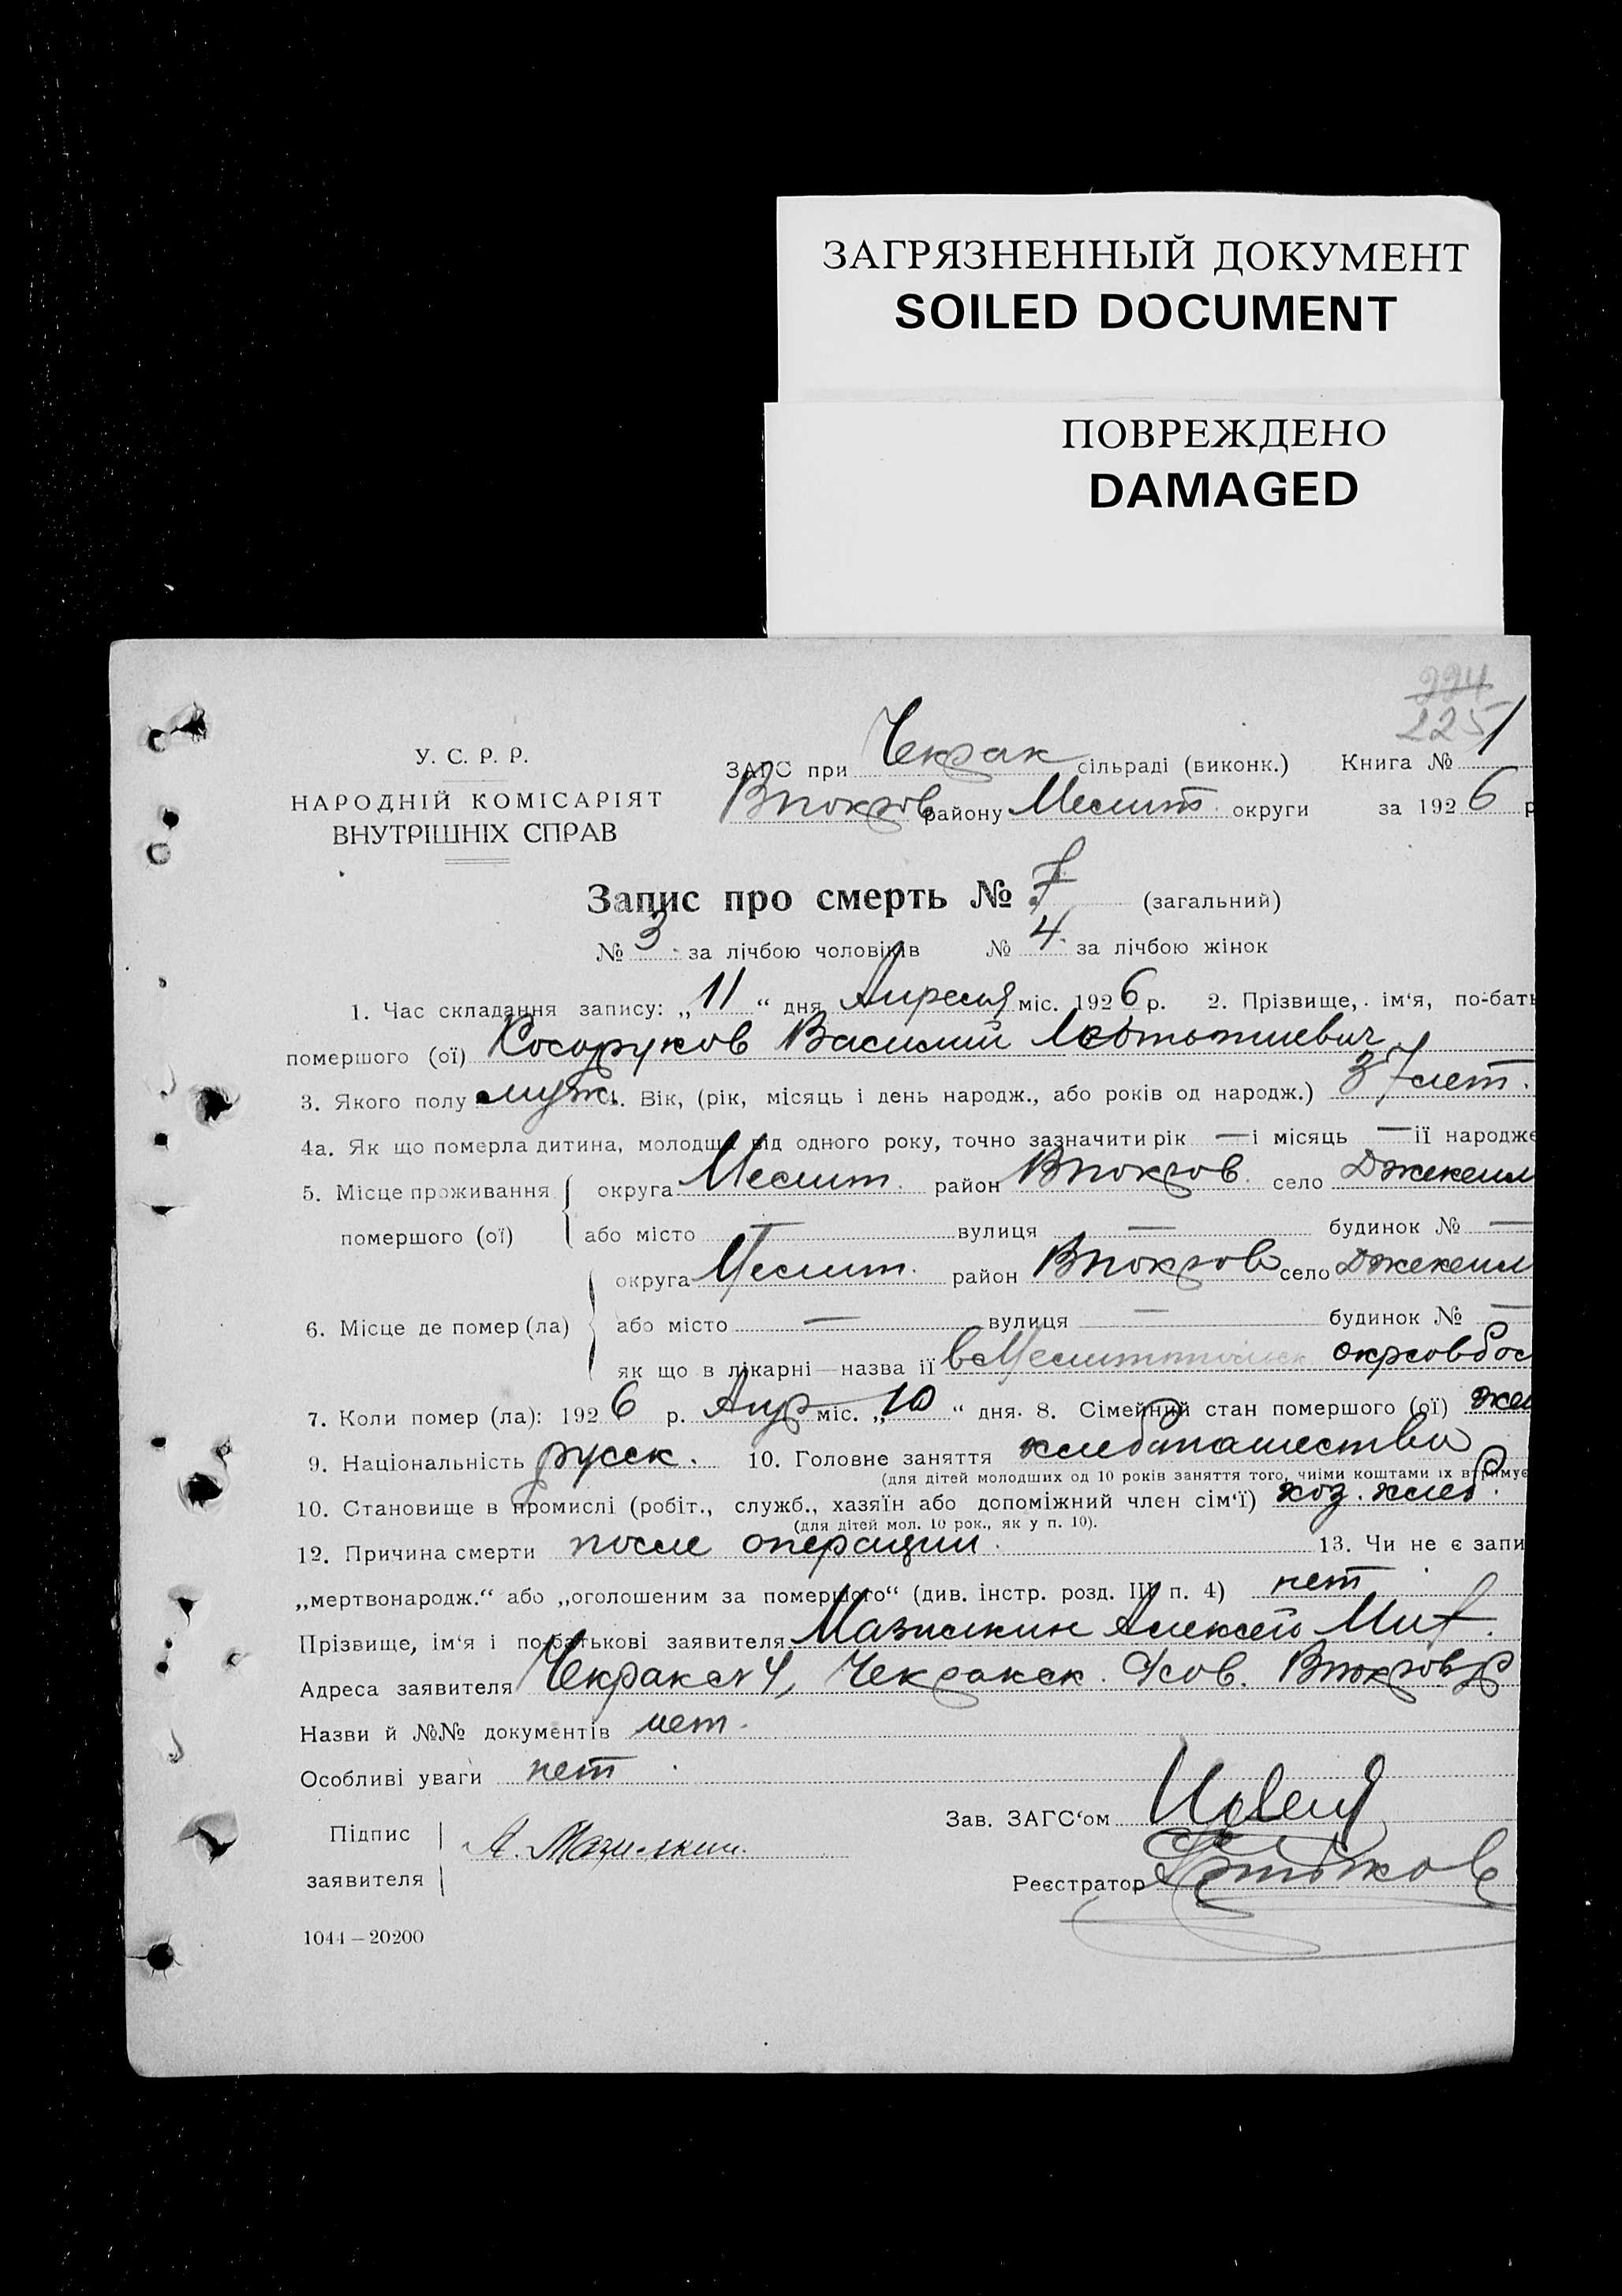 ЗАГРЯЗНЕННЫЙ ДОКУМЕНТ
SOILED DOCUMENT
ПОВРЕЖДЕНО
DAMAGED
224
225
У. С. Р. Р.
НАРОДНІЙ КОМІСАРІЯТ
ВНУТРІШНІХ СПРАВ
ЗАГС при Чекрак сільраді (виконк.) Книга № 1
Впокров району Мелит. округи за 1926 р
Запис про смерть № 7 (загальний)
№ 3 за лічбою чоловіків № 4 за лічбою жінок
1. Час складання запису: „11“ дня Апреля міс. 1926 р. 2. Прізвище, ім‘я, по-бать
помершого (ої) Косоруков Василий
3. Якого полу муж. 4. Вік, (рік, місяць і день народж., або років од народж.) 37 лет.
4а. Як що померла дитина, молодша від одного року, точно зазначити рік — і місяць — ії народже
5. Місце проживання округа Мелит. район Впокров. село Джекенл
помершого (ої) або місто — вулиця — будинок № —
округа Мелит. район Впокров село Джекенл
6. Місце де помер (ла) або місто — вулиця — будинок № —
як що в лікарні—назва ії в Мелитопольск окр
7. Коли помер (ла): 1926 р. Апр міс. „10“ дня. 8. Сімейний стан помершого (ої) жен
9. Національність русск. 10. Головне заняття хлебопашество
(для дітей молодших од 10 років заняття того, чиїми коштами їх втримує
10. Становище в промислі (робіт., служб., хазяїн або допоміжний член сім‘ї) хоз. хлеб.
(для дітей мол. 10 рок., як у п. 10).
12. Причина смерти после операции. 13. Чи не є запи
„мертвонародж.“ або „оголошеним за помершого“ (див. інстр. розд. III п. 4) нет
Прізвище, ім‘я і по-батькові заявителя Мазилкин Алексей Мит.
Адреса заявителя Чекрак Чекракск. Впокров р
Назви й №№ документів нет.
Особливі уваги нет
Зав. ЗАГС‘ом
Підпис
заявителя А. Мазилкин.
Реєстратор
1044—20200